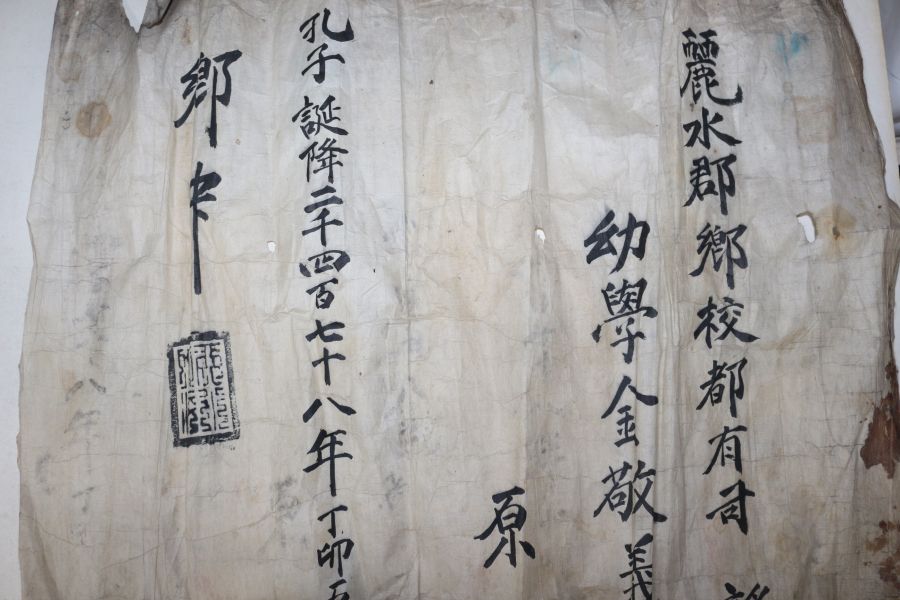 麗水郡鄕校都有司
幼學金敬義
原
孔子誕降二千四百七十八年 丁卯五
鄕中